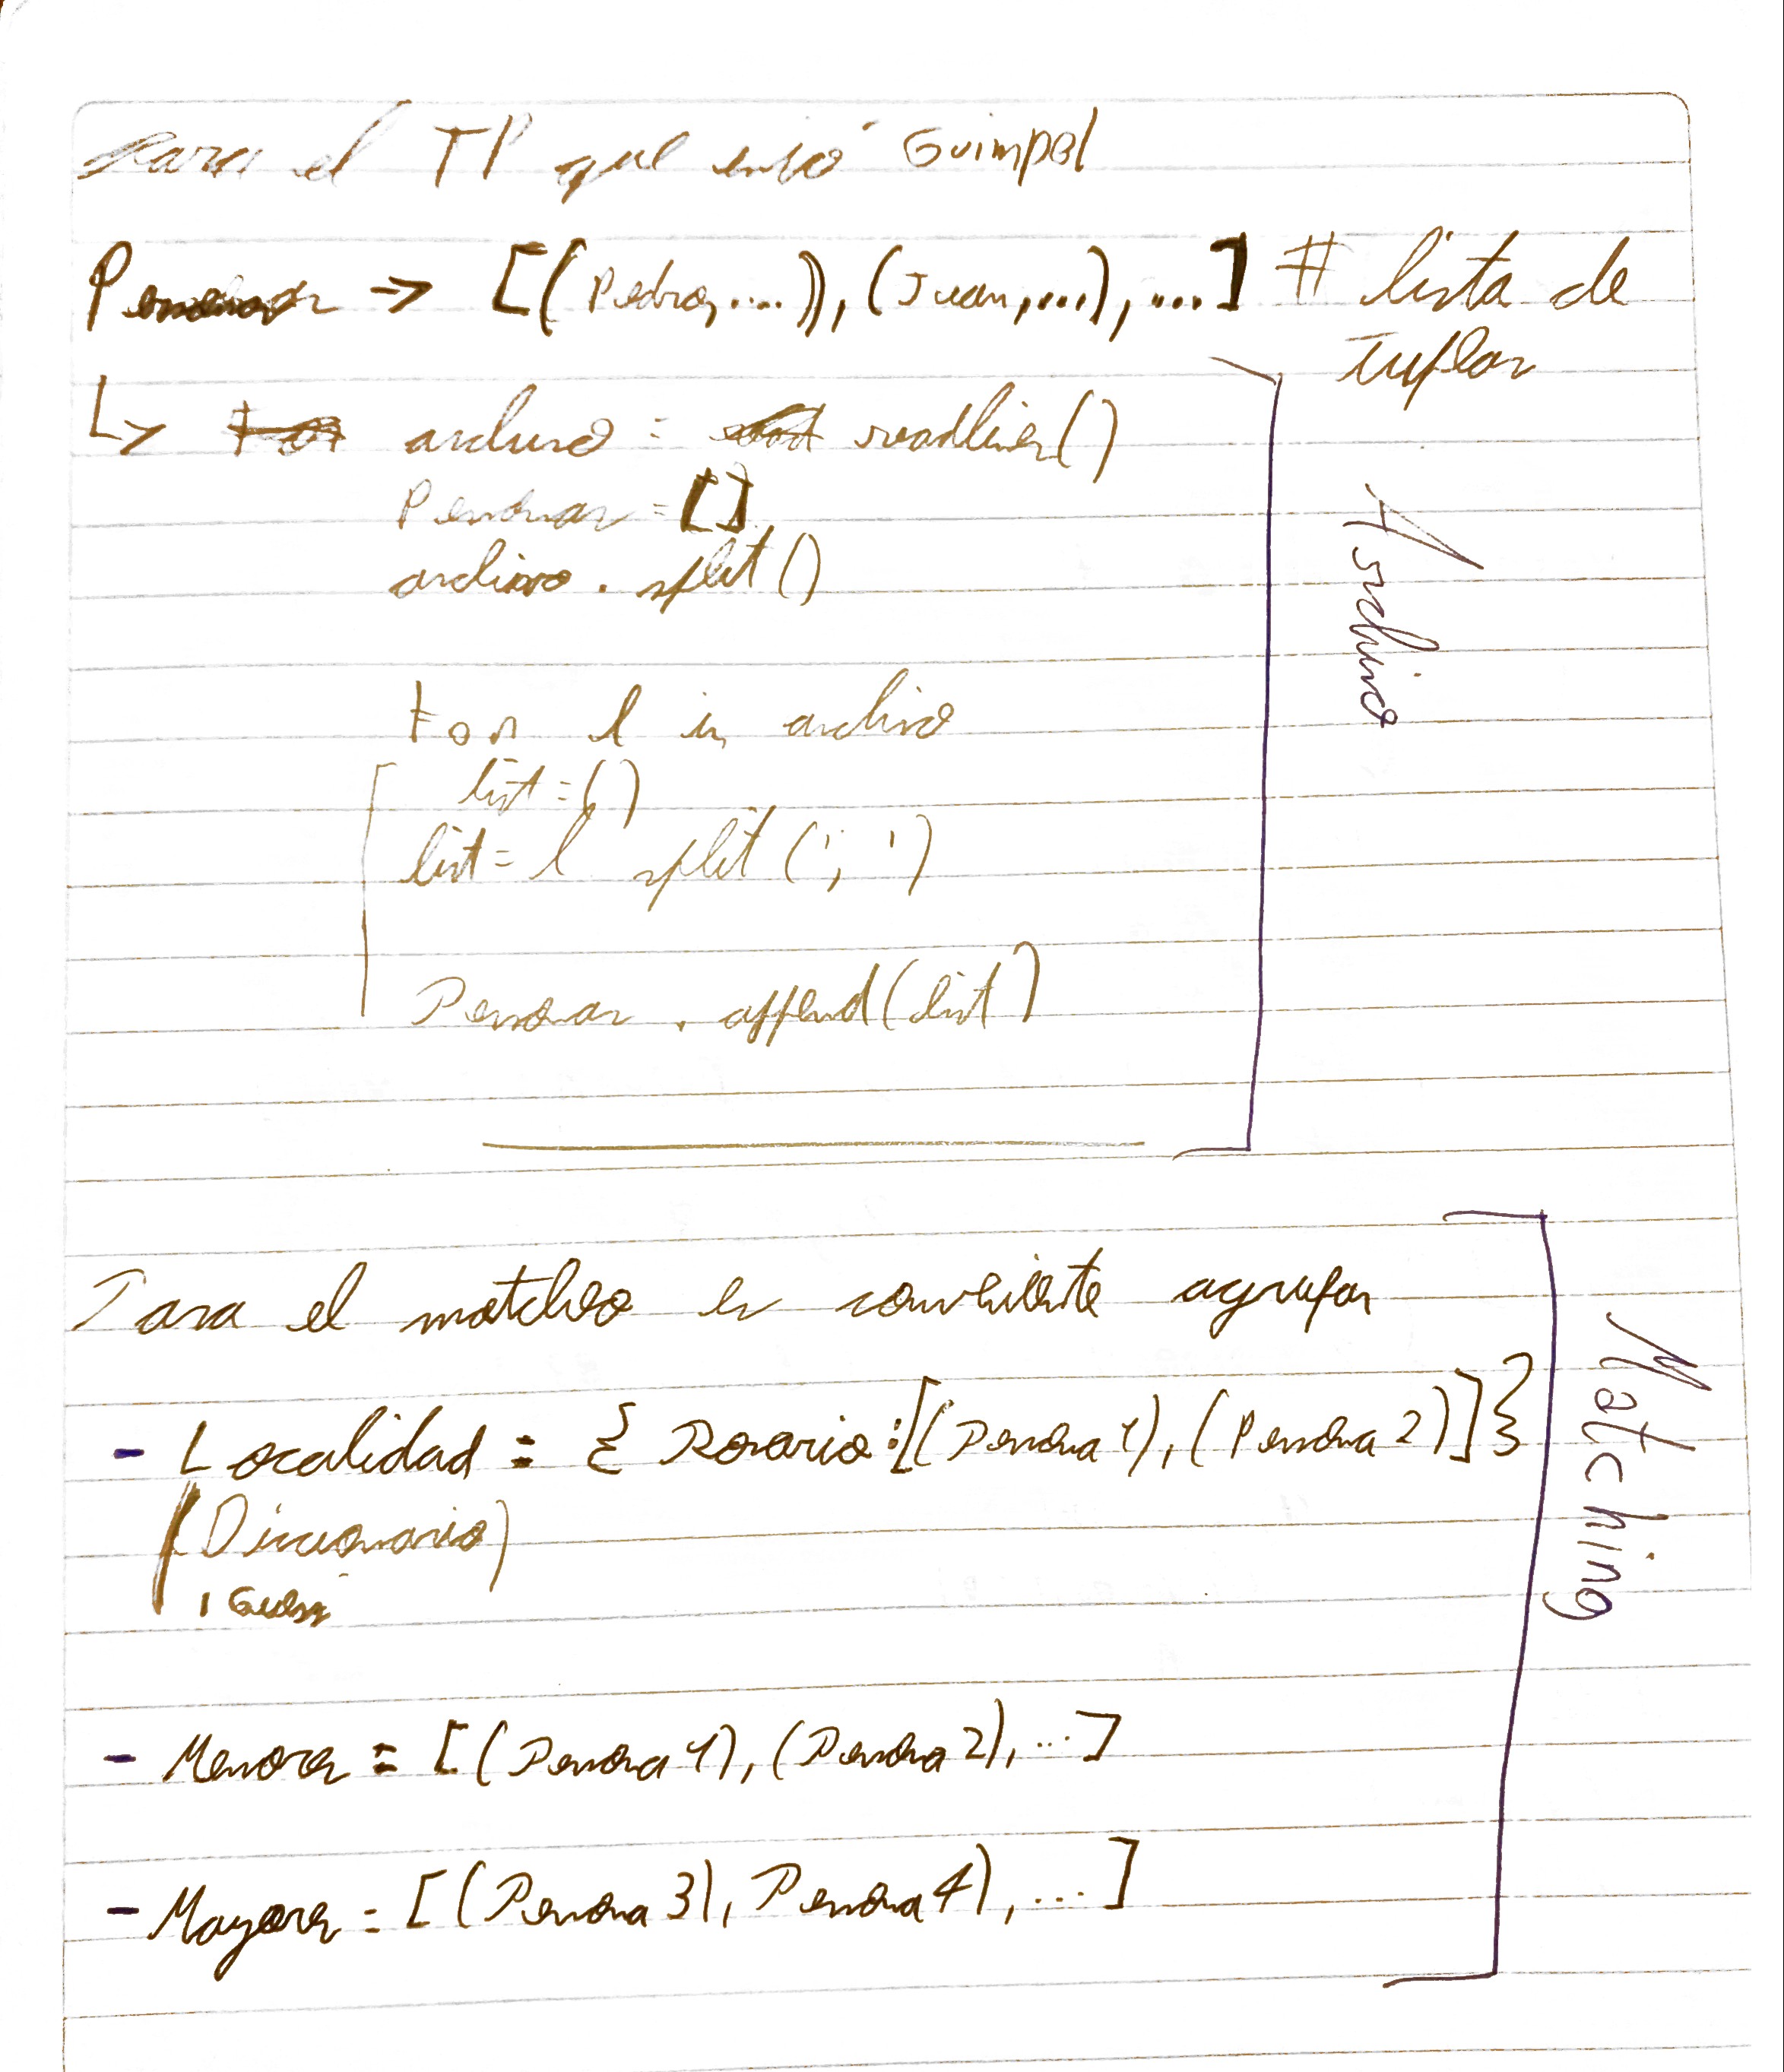 Para el TP que envió Guimpel
Personas -> [(Pedro, ...)), (Juan, ...), ...] # lista de
tuplas
↳ for archivo = read readlines()
Personas = []
archivo . split ()
for l in archivo
list = ()
list = l split (';')
Personas . append (list)
Archivo
Para el matcheo es conveniente agrupar
- Localidad = { Rosario : [(Persona 1), (Persona 2)] }
(Diccionario)
- Menores = [(Persona 1), (Persona 2), ...]
- Mayores = [(Persona 3), Persona 4), ...]
Matching